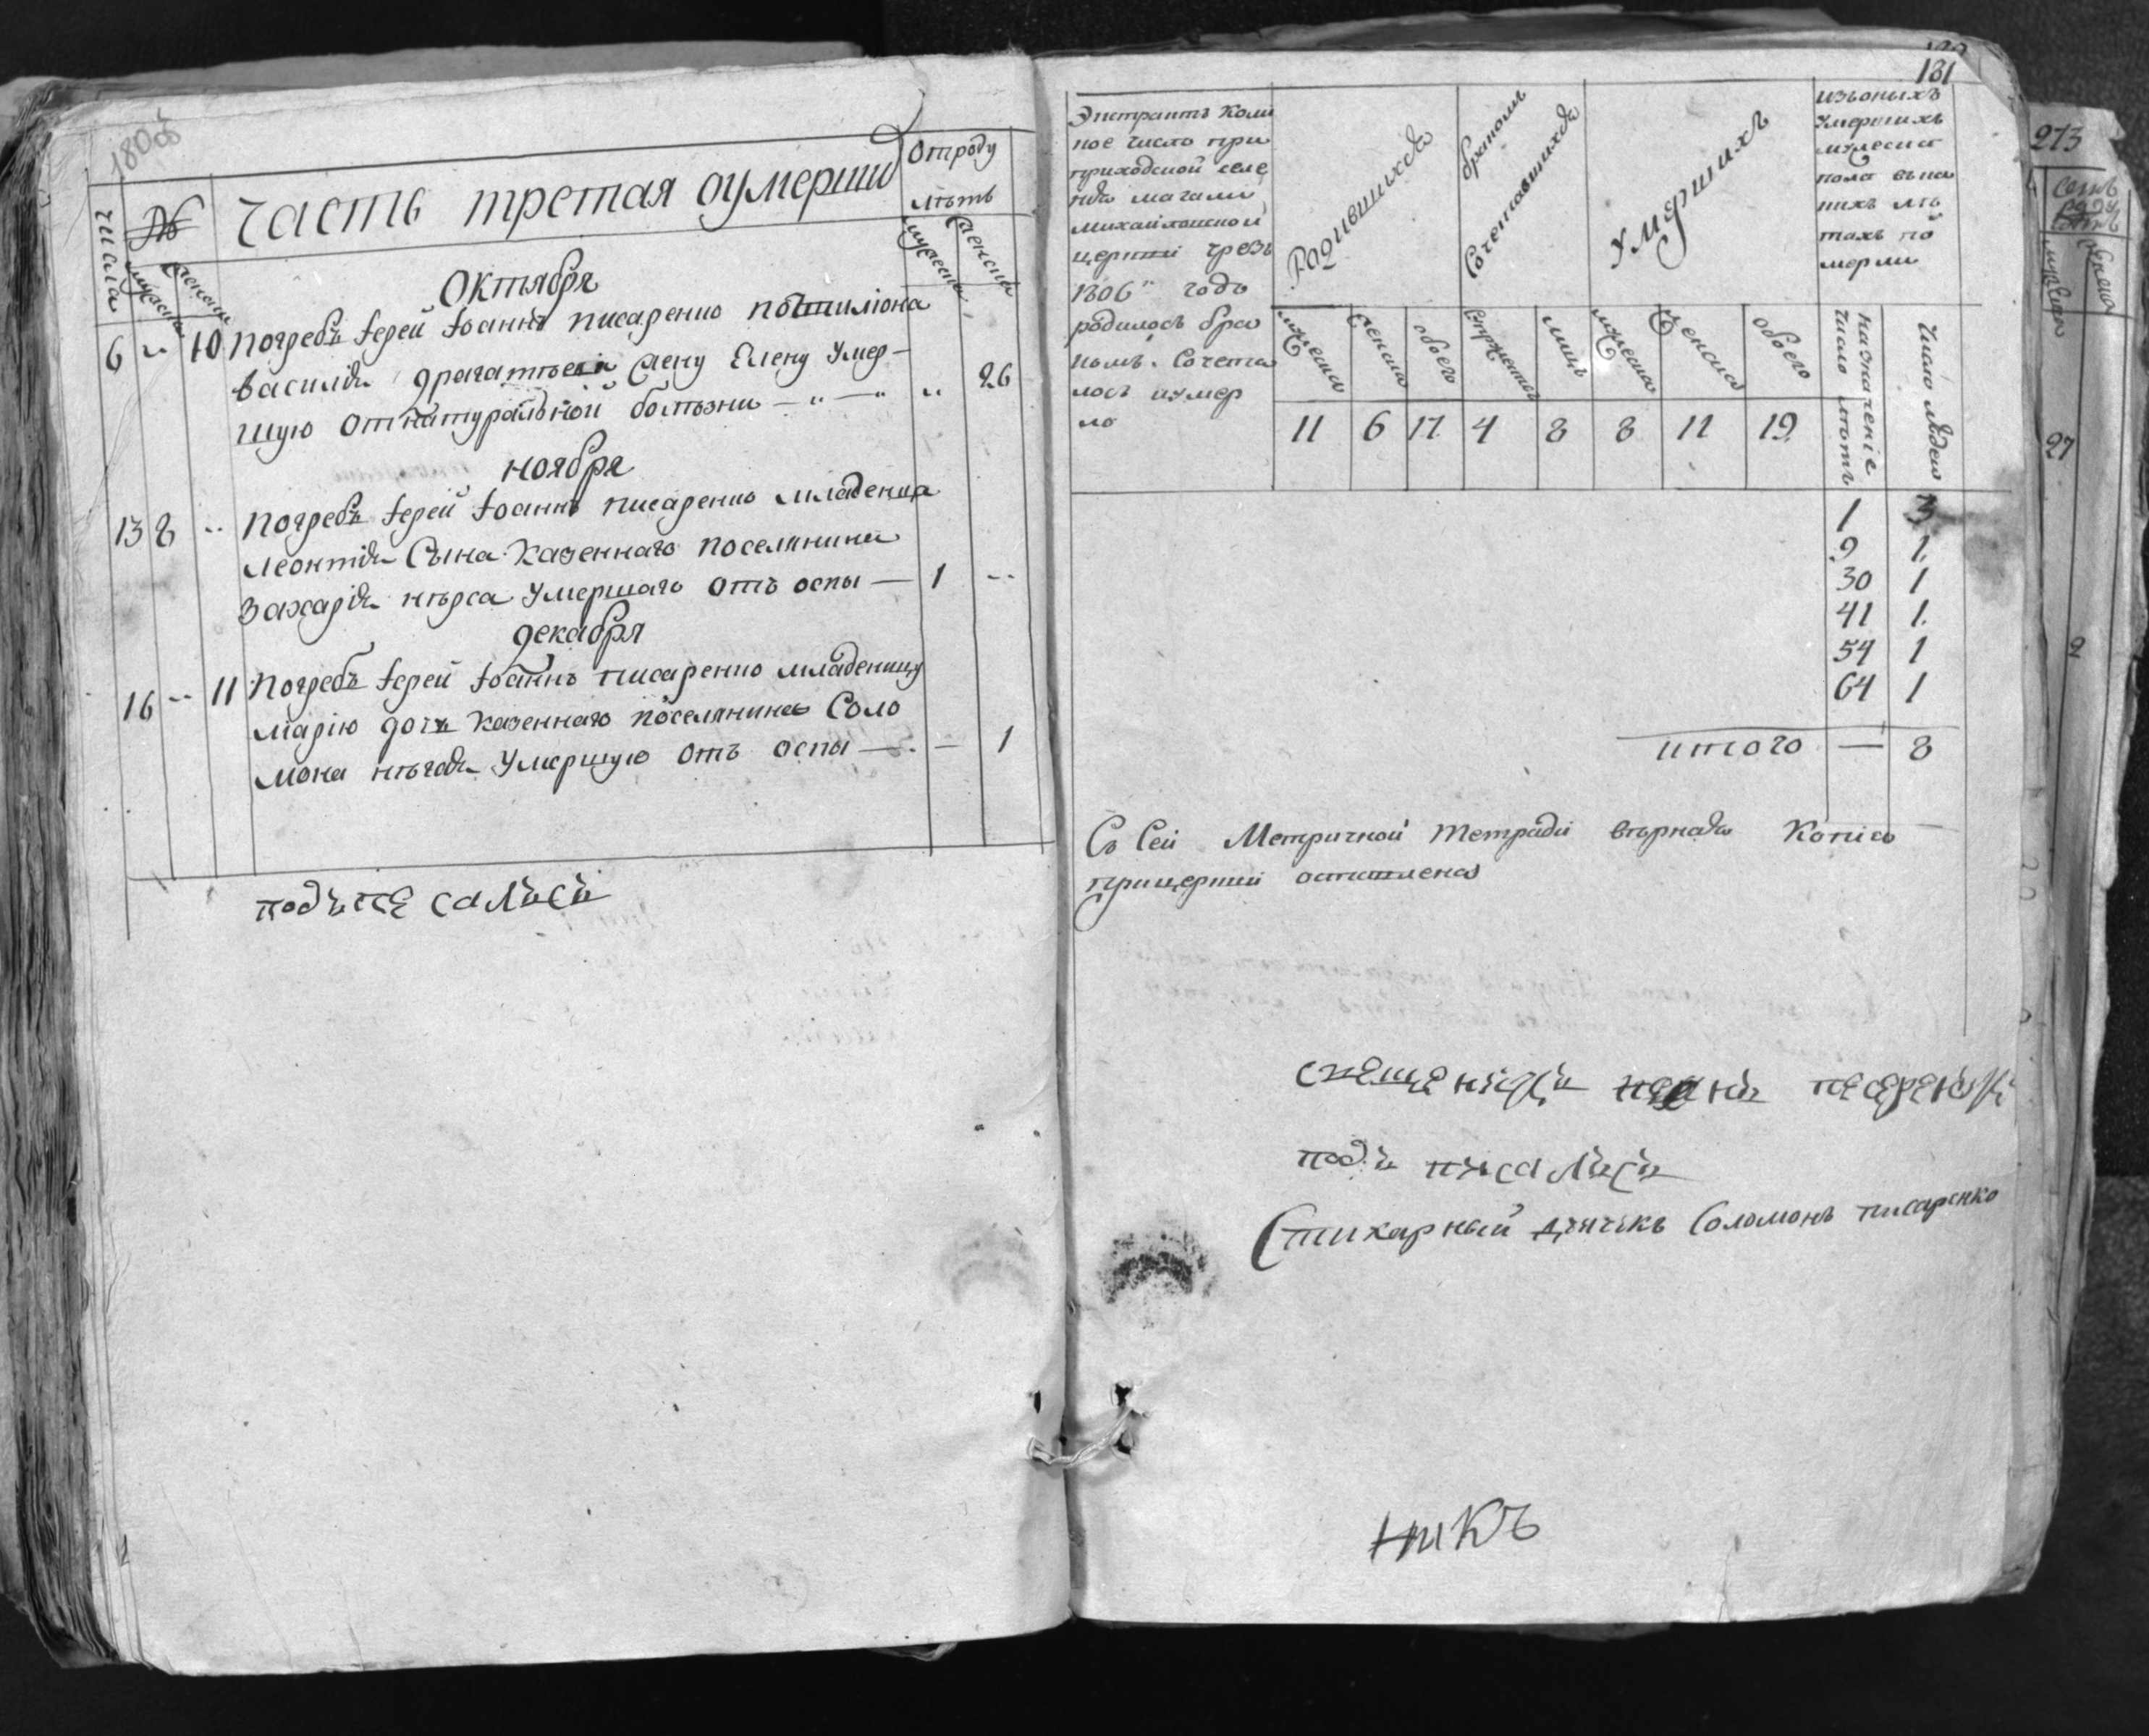 180 об
Часть третая оумерши
От роду
лѣтъ
числа
№
мужеска
женска
мужеска
женска
Октября
6 " 10 Погребъ Іерей Іоаннъ Писаренко
Василія Драгатѣ жену Елену умер-
шую от натуральной болѣзни — " — " " 26
Ноября
13 8 " Погребъ Іерей Іоаннъ Писаренко младенца
Леонтія Сына казеннаго поселянина
Захарія Нѣрса умершаго отъ оспы — 1 "
Декабря
16 " 11 Погребъ Іерей Іоаннъ Писаренко младеницу
Марію дочь казеннаго поселянина Соло
мона умершую отъ оспы — — 1
подъпе салъсъ
181
Экстрактъ коли
кое число при
приходской селе
нія
Михайловской
церкви чрезъ
1806" годъ
родилось бра
комъ сочета
лось и умер
ло
Родившихся
бракомъ
Сочетавшихся
Умершихъ
изъоныхъ
умершихъ
мужеска
пола въ ка
кихъ лѣ
тахъ по
мерли
мужеска
женска
обоего
лицъ
мужеска
женска
обоего
назначеніе
число лѣтъ
число людей
11 6 17 4 8 8 11 19
1 3
9 1
30 1
41 1
54 1
64 1
итого — 8
Съ Сей Метричной тетради вѣрная Копія
при церкви оставлена
подъ писалъсъ
Стихарный дьячекъ Соломонъ Писаренко
никъ
273
27
2